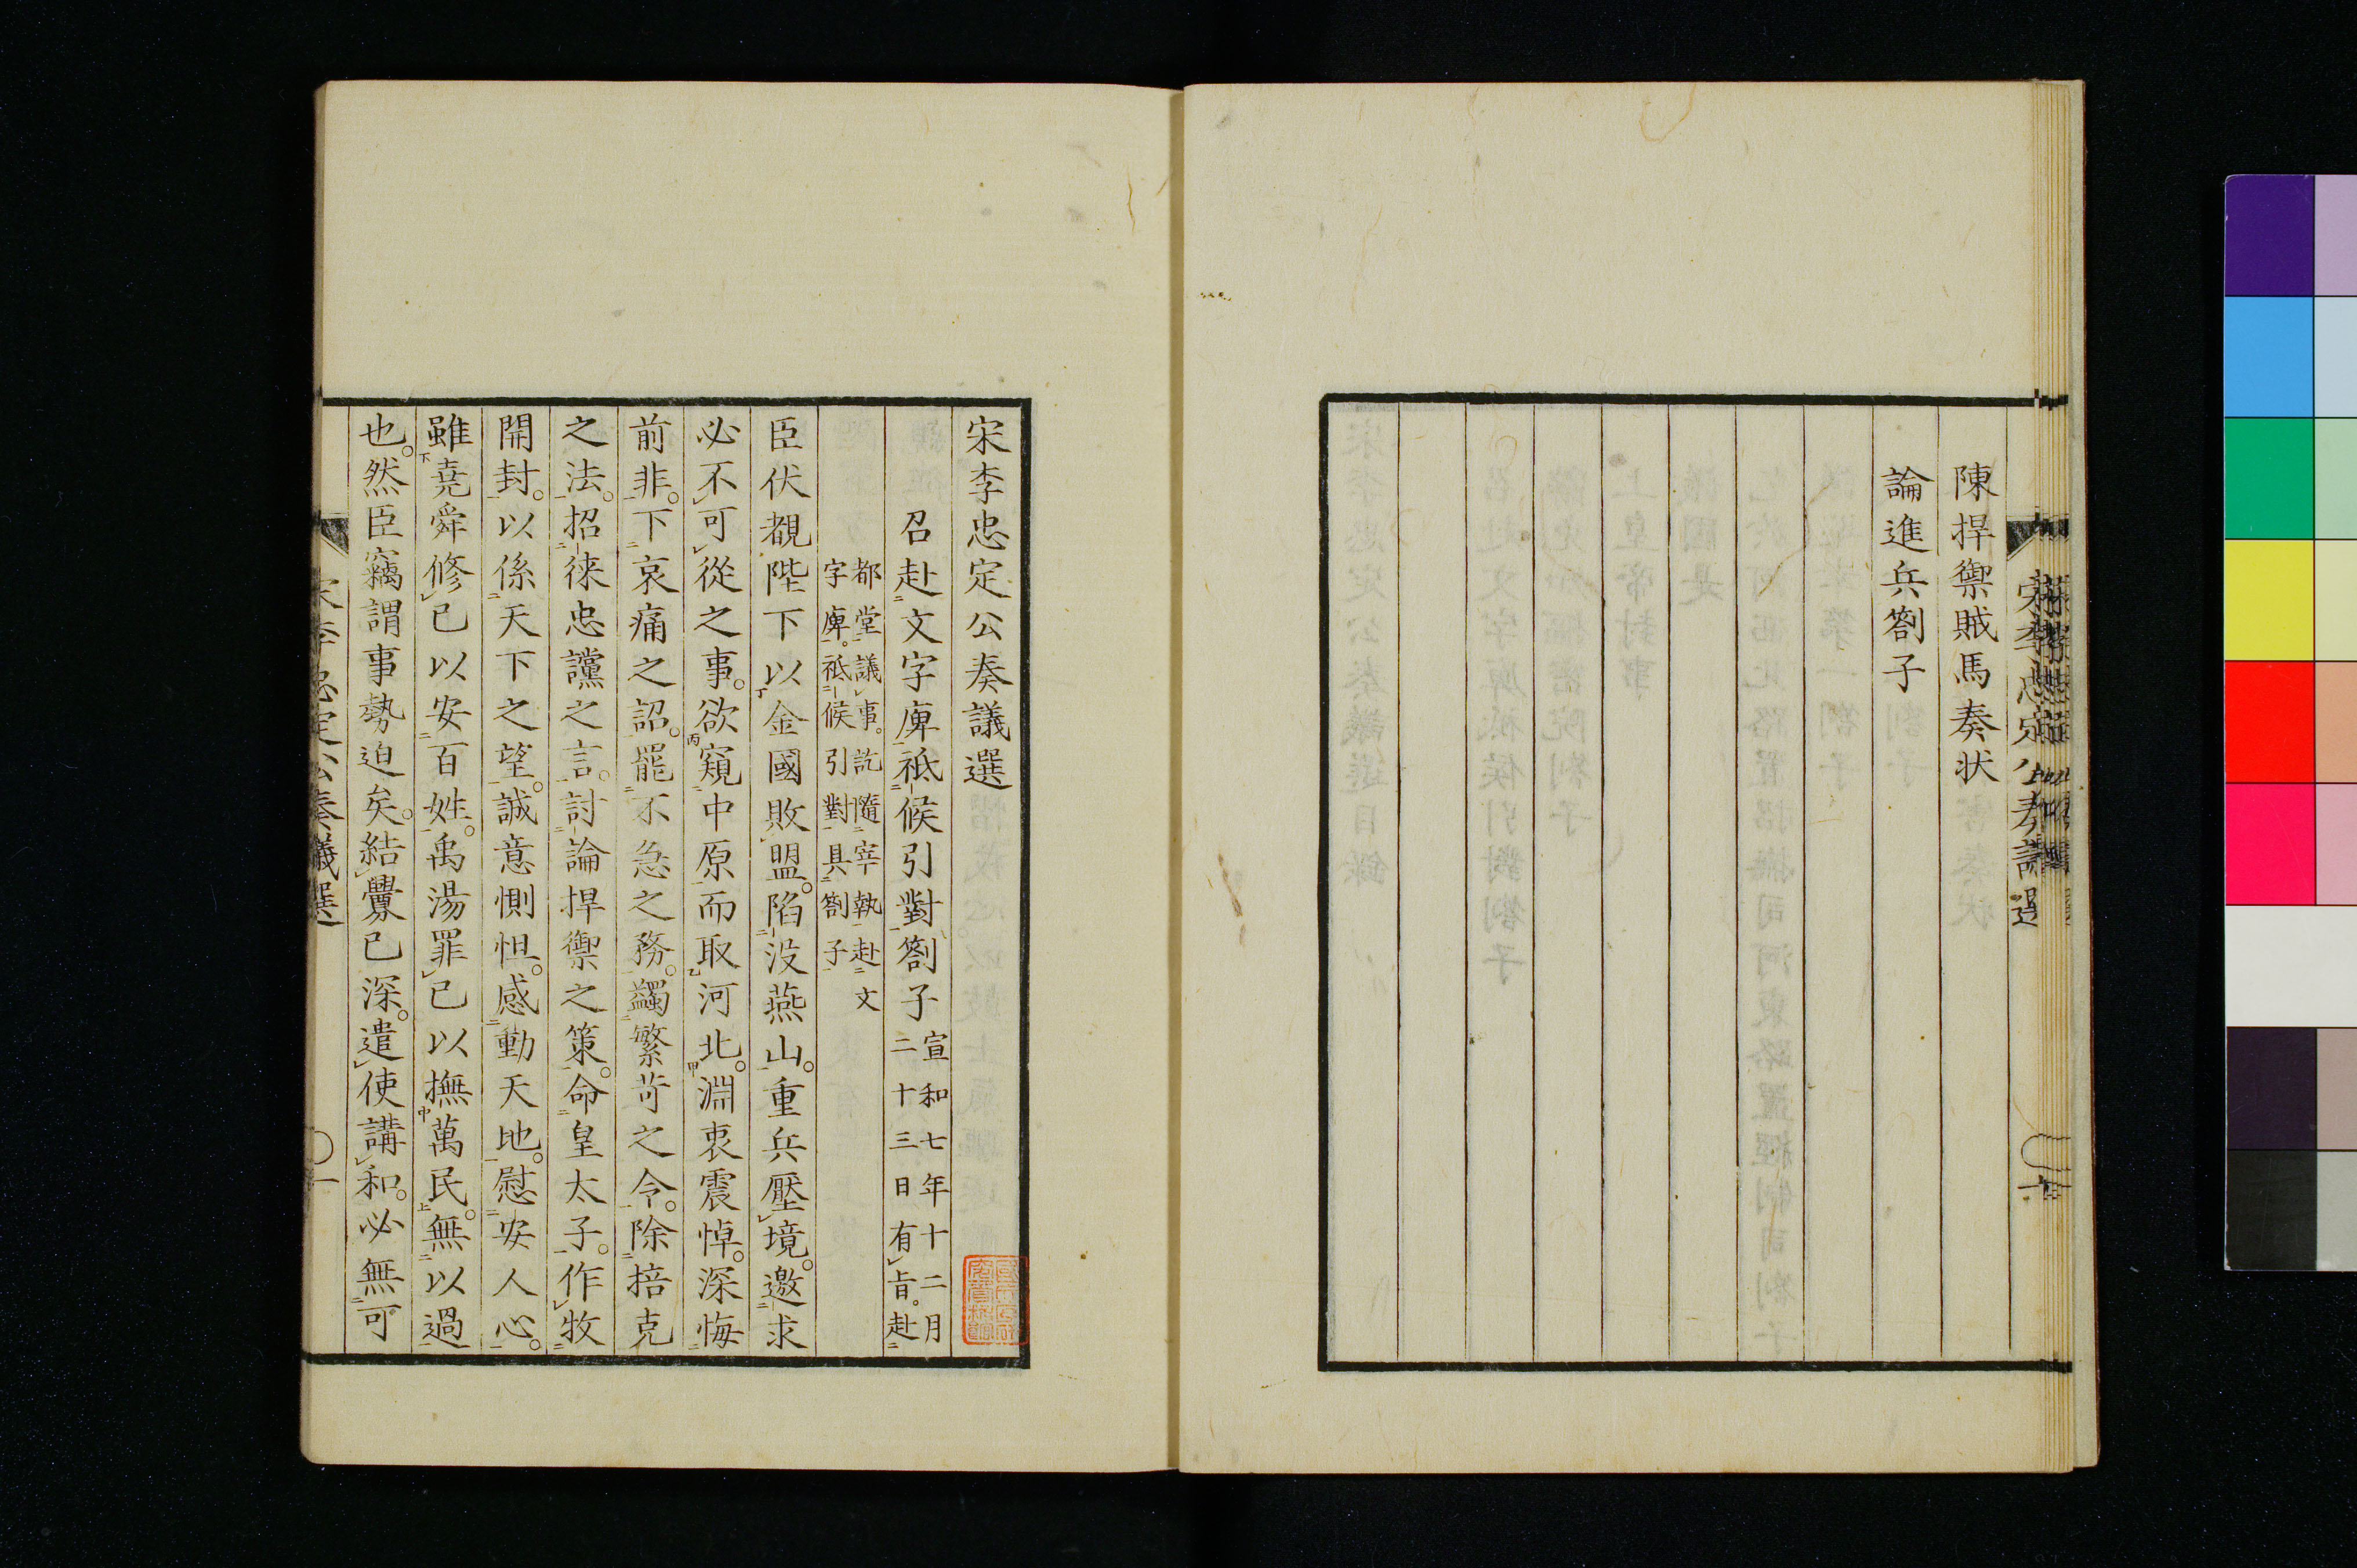 陳捍禦賊馬奏状
論進兵劄子
宋李忠定公奏議選
召赴文字庫祗候引對劄子
宣和七年十二月
二十三日有旨赴
都堂議事訖隨宰執赴文
字庫祗候引對具劄子
臣伏覩陛下以金國敗盟陷沒燕山重兵壓境邀求
必不可從之事欲窺中原而取河北淵衷震悼深悔
前非下哀痛之詔罷不急之務蠲繁苛之令除掊克
之法招徠忠讜之言討論捍禦之策命皇太子作牧
開封以係天下之望誠意惻怛感動天地慰安人心
雖堯舜修已以安百姓禹湯罪已以撫萬民無以過
也然臣竊謂事勢迫矣結釁已深遣使講和必無可
宋李忠定公奏議選
一